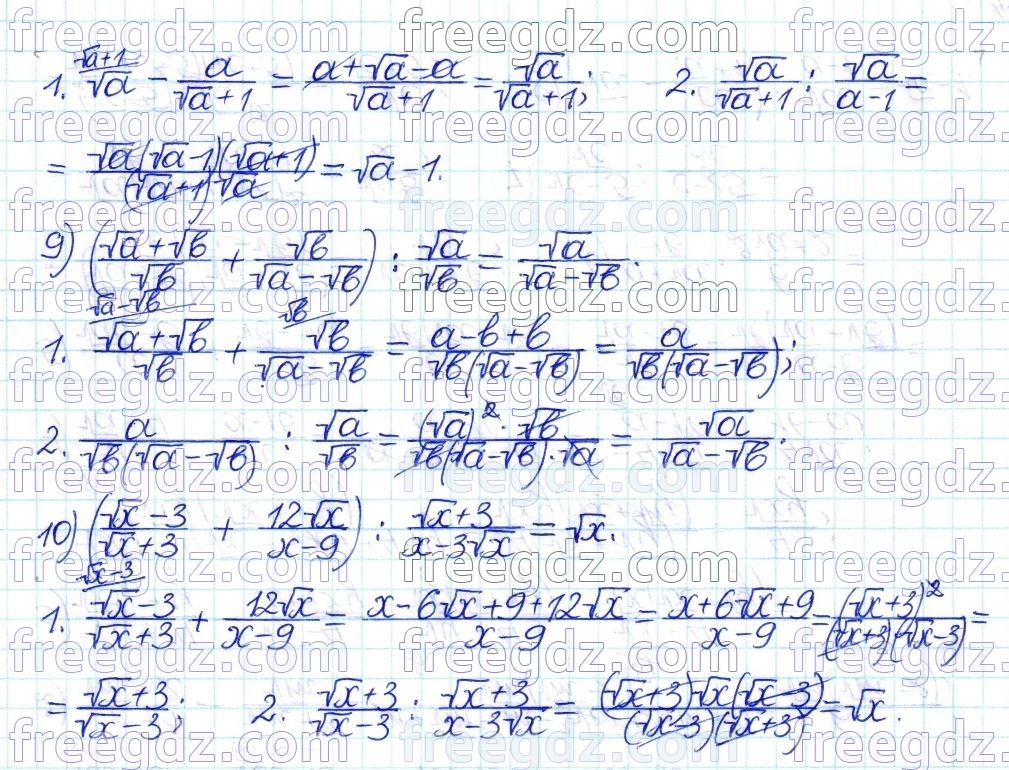 1. √a^{√a+1} − a/(√a+1) = (a+√a−a)/(√a+1) = √a/(√a+1); 2. √a/(√a+1) : √a/(a−1) =
= (√a(√a−1)(√a+1))/((√a+1)√a) = √a−1.
9) ((√a+√b)/√b + √b/(√a−√b)) : √a/√b = √a/(√a−√b).
1. (√a+√b)/√b^{√a−√b} + √b/(√a−√b)^{√b} = (a−b+b)/(√b(√a−√b)) = a/(√b(√a−√b));
2. a/(√b(√a−√b)) : √a/√b = ((√a)²·√b)/(√b(√a−√b)·√a) = √a/(√a−√b).
10) ((√x−3)/(√x+3) + 12√x/(x−9)) : (√x+3)/(x−3√x) = √x.
1. (√x−3)/(√x+3)^{√x−3} + 12√x/(x−9) = (x−6√x+9+12√x)/(x−9) = (x+6√x+9)/(x−9) = (√x+3)²/((√x+3)(√x−3)) =
= (√x+3)/(√x−3); 2. (√x+3)/(√x−3) : (√x+3)/(x−3√x) = ((√x+3)√x(√x−3))/((√x−3)(√x+3)) = √x.
freegdz.com